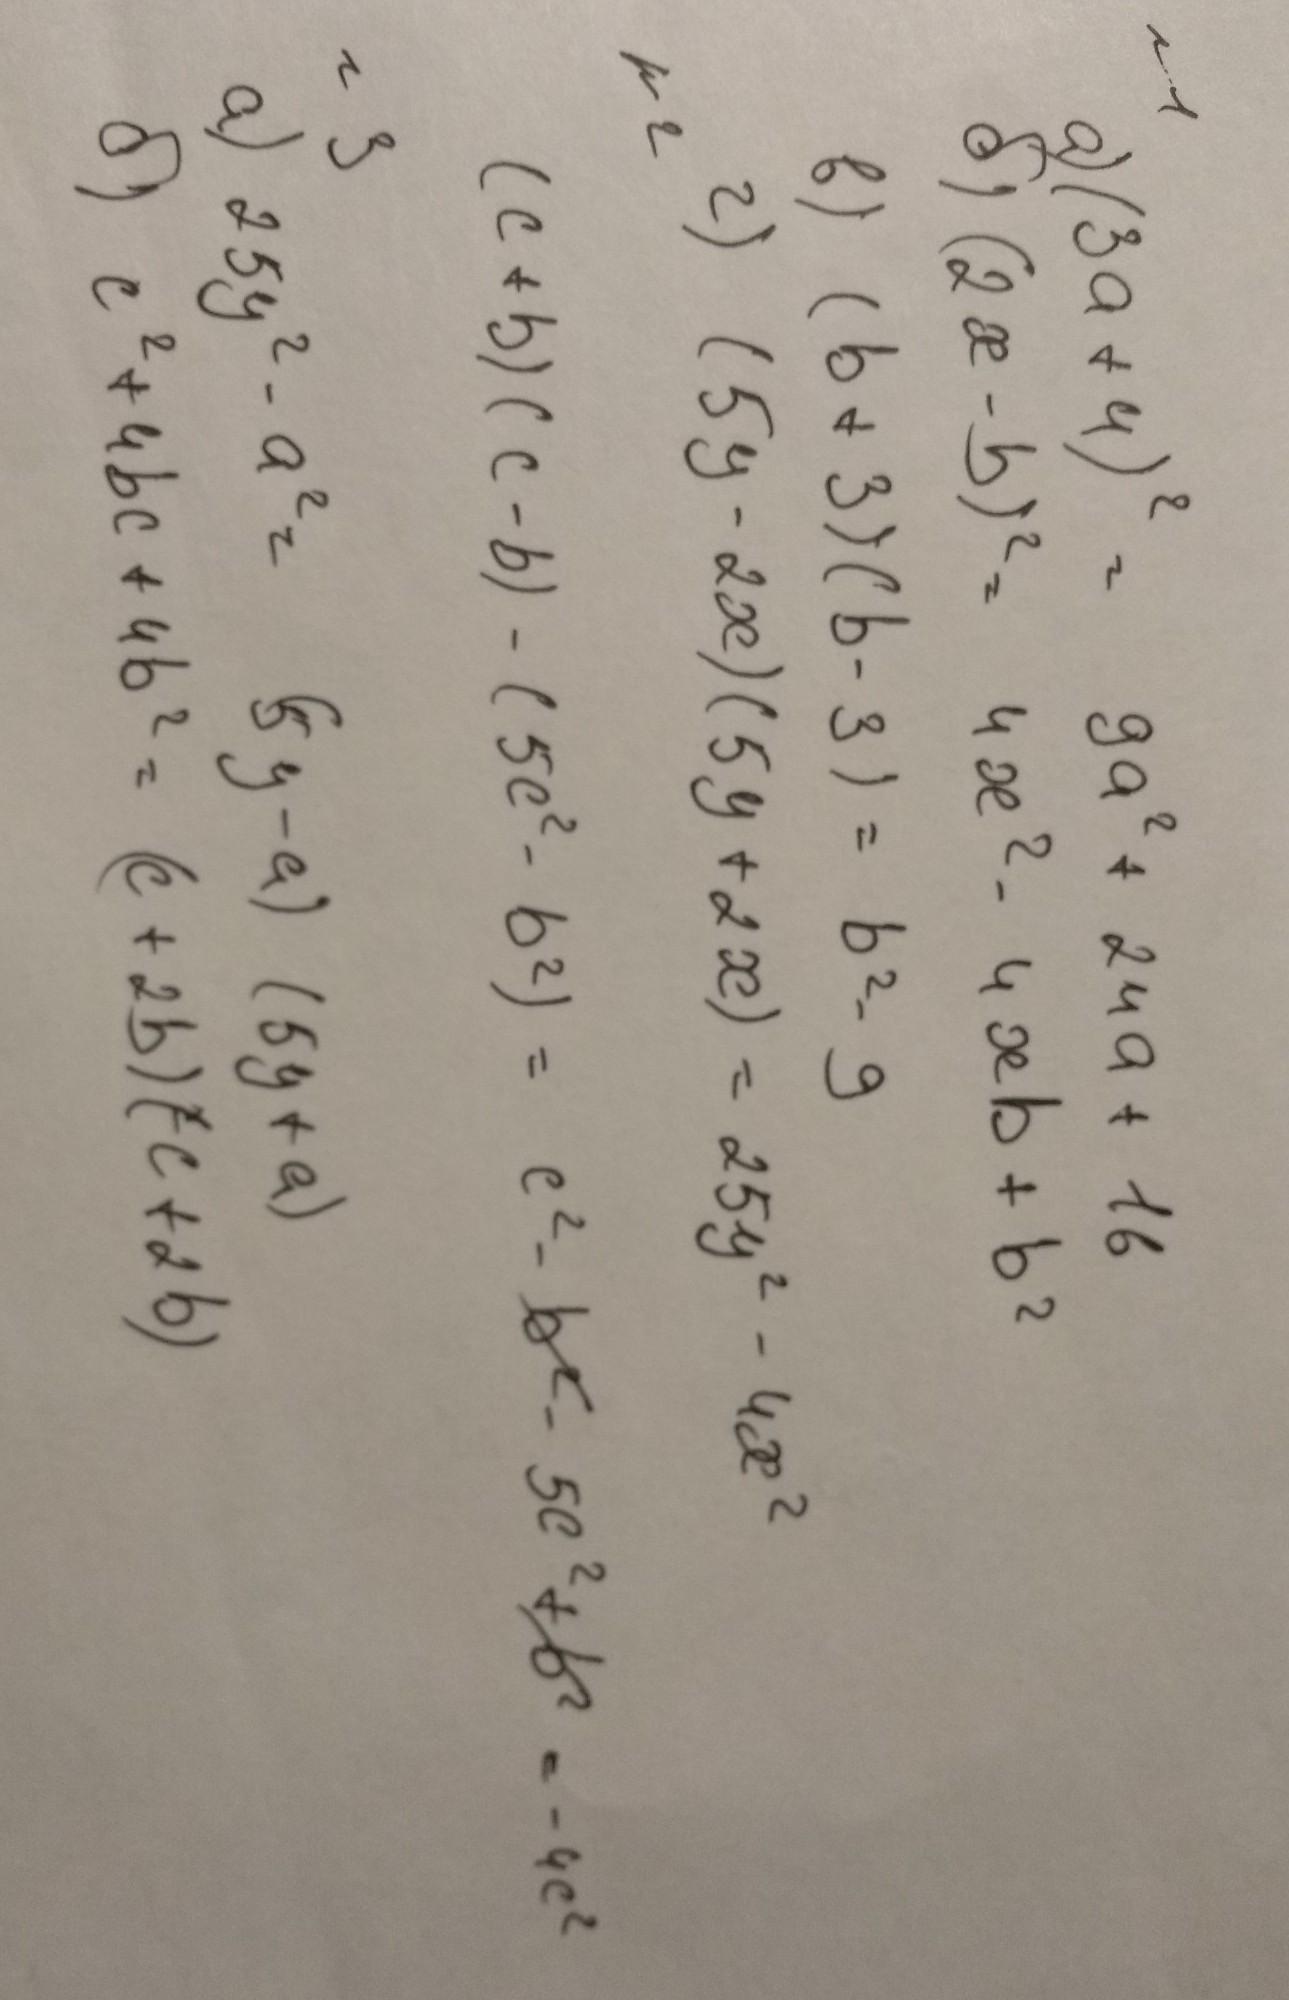 №1
а) (3a + 4)² = 9a² + 24a + 16
б) (2x - b)² = 4x² - 4xb + b²
в) (b + 3)(b - 3) = b² - 9
г) (5y - 2x)(5y + 2x) = 25y² - 4x²
№2
(c + b)(c - b) - (5c² - b²) = c² - b² - 5c² + b² = -4c²
№3
а) 25y² - a² = (5y - a)(5y + a)
б) c² + 4bc + 4b² = (c + 2b)(c + 2b)